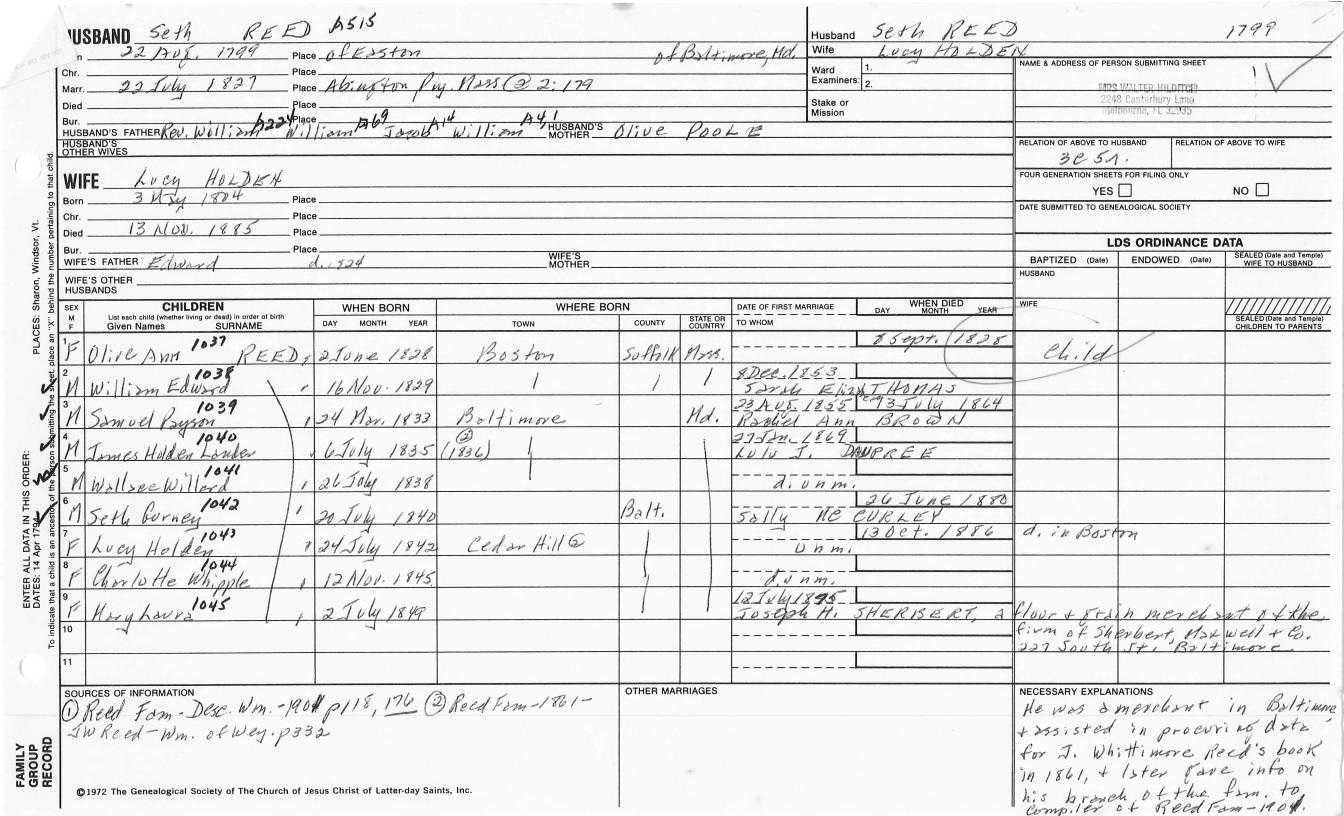 HUSBAND Seth REED A515
22 Aug. 1799 Place of Easton of Baltimore, Md.
Chr. Place
Marr. 22 July 1827 Place Abington Pry. Mass @ 2:179
Died Place
Bur. Place
HUSBAND'S FATHER Rev. William A224 William A69 Jacob A14 William A4,1 HUSBAND'S MOTHER Olive POOLE
HUSBAND'S OTHER WIVES
Husband Seth REED 1799
Wife Lucy HOLDEN
Ward Examiners: 1.
2.
Stake or Mission
NAME & ADDRESS OF PERSON SUBMITTING SHEET
MRS WALTER HILDITCH
2248 Canterbury Lane
Melbourne, FL 32935
RELATION OF ABOVE TO HUSBAND RELATION OF ABOVE TO WIFE
3C 5r.
FOUR GENERATION SHEETS FOR FILING ONLY
YES NO
DATE SUBMITTED TO GENEALOGICAL SOCIETY
WIFE Lucy HOLDEN
Born 3 May 1804 Place
Chr. Place
Died 13 Nov. 1885 Place
Bur. Place
WIFE'S FATHER Edward d. 1824 WIFE'S MOTHER
WIFE'S OTHER HUSBANDS
LDS ORDINANCE DATA
BAPTIZED (Date) ENDOWED (Date) SEALED (Date and Temple) WIFE TO HUSBAND
HUSBAND
WIFE
SEALED (Date and Temple) CHILDREN TO PARENTS
SEX M F CHILDREN WHEN BORN WHERE BORN DATE OF FIRST MARRIAGE WHEN DIED
List each child (whether living or dead) in order of birth
Given Names SURNAME DAY MONTH YEAR TOWN COUNTY STATE OR COUNTRY TO WHOM DAY MONTH YEAR
1 F Olive Ann 1037 REED, 2 June 1828 Boston Suffolk Mass. 8 Sept. 1828 Child
2 M William Edward 1038 16 Nov. 1829 8 Dec. 1853 Sarah Eliz. THOMAS
3 M Samuel Payson 1039 24 Mar. 1833 Baltimore Md. 23 Aug. 1855 13 July 1864 Rachel Ann BROWN
4 M James Holden Lander 1040 6 July 1835 (② 1836) 27 Jan. 1869 Lulu J. DAUPREE
5 M Wallace Willard 1041 26 July 1838 d. unm.
6 M Seth Gurney 1042 20 July 1840 Balt. 26 June 1880 Sally Mc CURLEY
7 F Lucy Holden 1043 24 July 1842 Cedar Hill 13 Oct. 1886 unm. d. in Boston
8 F Charlotte Whipple 1044 12 Nov. 1845 d. unm.
9 F Mary Laura 1045 2 July 1849 12 July 1895 Joseph H. SHERBERT, a flour & grain merchant of the
10 firm of Sherbert, Maxwell & Co.
227 South St. Baltimore
11
SOURCES OF INFORMATION
① Reed Fam - Desc. Wm. - 1901 p118, 176 ② Reed Fam - 1861 -
JW Reed - Wm. of Wey. p332
OTHER MARRIAGES
NECESSARY EXPLANATIONS
He was a merchant in Baltimore
& assisted in procuring data
for J. Whittimore Reed's book
in 1861, & later gave info on
his branch of the fam. to
compiler of Reed Fam - 1901.
©1972 The Genealogical Society of The Church of Jesus Christ of Latter-day Saints, Inc.
FAMILY GROUP RECORD
ENTER ALL DATA IN THIS ORDER:
DATES: 14 Apr 1794 PLACES: Sharon, Windsor, Vt.
To indicate that a child is an ancestor of the person submitting the sheet, place an "X" behind the number pertaining to that child.